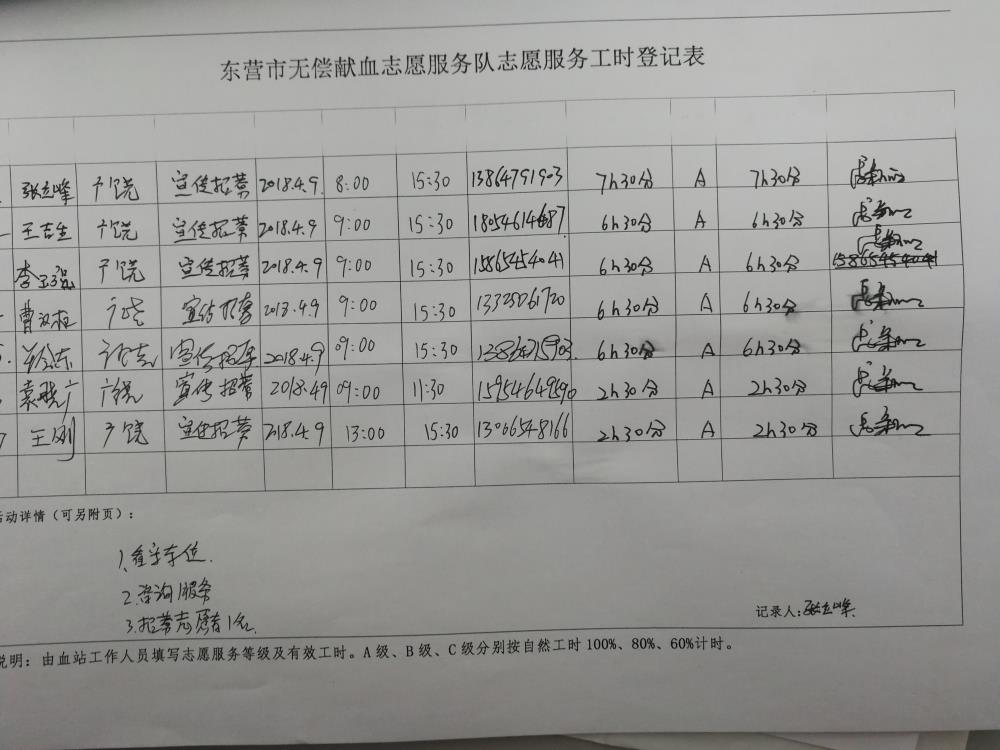 东营市无偿献血志愿服务队志愿服务工时登记表
张立峰 广饶 宣传招募 2018.4.9. 8:00 15:30 13864791903 7h30分 A 7h30分
王吉生 广饶 宣传招募 2018.4.9 9:00 15:30 6h30分 A 6h30分
广饶 宣传招募 2018.4.9 9:00 15:30 15865454041 6h30分 A 6h30分
曹 宣传招募 2018.4.9 9:00 15:30 6h30分 A 6h30分
宣传招募 2018.4.9 09:00 15:30 6h30分 A 6h30分
袁晓广 广饶 宣传招募 2018.49 09:00 11:30 15954649590 2h30分 A 2h30分
王刚 广饶 宣传招募 2018.4.9 13:00 15:30 13066548166 2h30分 A 2h30分
活动详情（可另附页）：
1.
2.咨询服务
3.招募志愿者1名.
记录人:张立峰
说明：由血站工作人员填写志愿服务等级及有效工时。A 级、B 级、C 级分别按自然工时 100%、80%、60%计时。